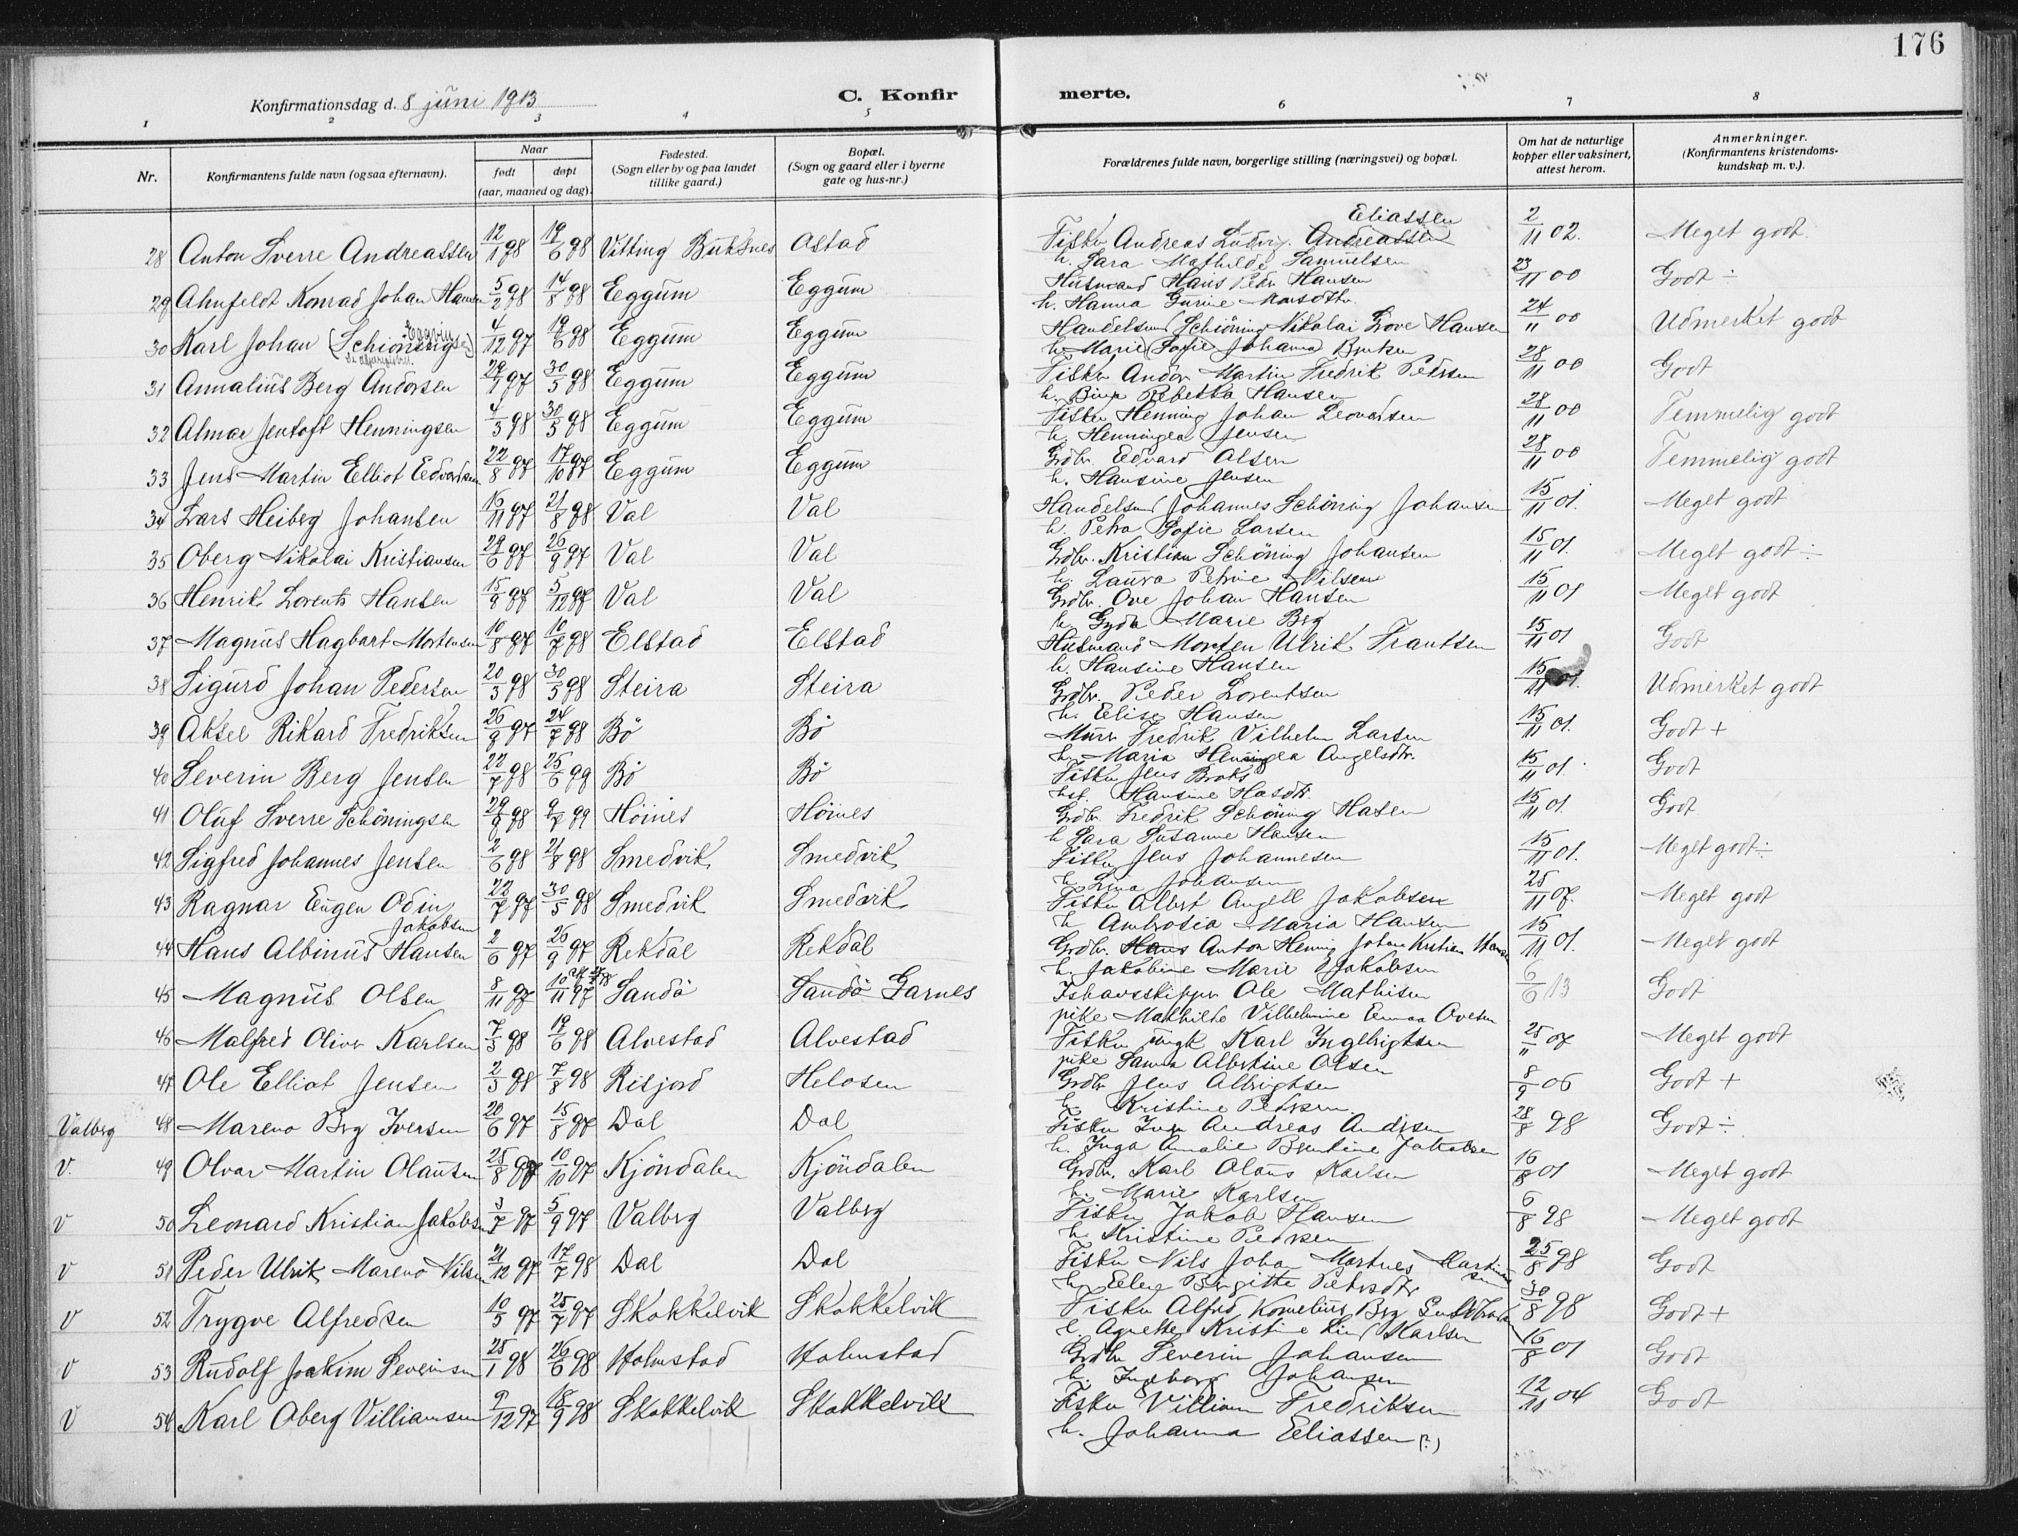 176
Konfirmationsdag d. 8 juni 1913
C. Konfirmerte.
1 2 3 4 5 6 7 8
Nr.
Konfirmantens fulde navn (ogsaa efternavn).
Naar
født døpt
(aar, maaned og dag).
Fødested.
(Sogn eller by og paa landet
tillike gaard.)
Bopæl.
(Sogn og gaard eller i byerne
gate og hus-nr.)
Forældrenes fulde navn, borgerlige stilling (næringsvei) og bopæl.
Om hat de naturlige
kopper eller vaksinert,
attest herom.
Anmerkninger.
(Konfirmantens kristendoms-
kundskap m. v.).
Eliassen
28 Anton Sverre Andreassen 12/1 98 19/6 98 Vitting Buksnes Ostad Fisker Andreas Ludvig Andreassen 2/11 02. Meget godt
h. Sara Mathilde Samuelsen
29 Ahnfeldt Konrad Johan Hansen 5/2 98 14/8 98 Eggum Eggum Husmand Hans Peder Hansen 23/11 00 Godt ÷
h. Hanna Gurine
30 Karl Johan (Schiöningsen) 4/12 97 19/6 98 Eggum Eggum Handelsmand Schiöning Nikolai Hansen 24/11 00 Udmerket godt
h. Marie Sofie Johanna
31 Annalius Berg Andorsen 29/1 97 30/5 98 Eggum Eggum Fisker Andor Martin Fredrik Pedersen 28/11 00 Godt
h. Rebekka Hansen
32 Almar Jentoft Henningsen 4/3 98 30/5 98 Eggum Eggum Fisker Henning Johan 28/11 00 Temmelig godt
h. Henningea Jensen
33 Jens Martin Elliot Edvardsen 22/8 97 17/10 97 Eggum Eggum Grdbr. Edvard Olsen 28/11 00 Temmelig godt
h. Hansine Jensen
34 Lars Heiberg Johansen 16/11 97 21/8 98 Val Val Handelsmand Johannes Schöning Johansen 15/11 01. Meget godt
h. Petra Sofie Larsen
35 Oberg Nikolai Kristiansen 29/6 97 26/9 97 Val Val Grdbr. Kristian Schöning Johansen 15/11 01. Meget godt ÷
h. Laura Petrine Nilsen
36 Henrik Lorents Hansen 15/9 97 5/12 97 Val Val Grdbr. Ove Johan Hansen 15/11 01 Meget godt
h. Gyda Marie Berg
37 Magnus Hagbart Mortensen 10/8 97 10/7 98 Elstad Elstad Husmand Morten Ulrik Frantsen 15/11 01 Godt
h. Hansine Hansen
38 Sigurd Johan Pedersen 20/3 98 30/5 98 Steira Steira Grdbr. Peder Lorentsen 15/11 01. Udmerket godt
h. Elise Hansen
39 Aksel Rikard Fredriksen 26/9 97 24/7 98 Bö Bö Murer Fredrik Vilhelm Larsen 15/11 01. Godt +
h. Maria Henningea Angelsdtr.
40 Severin Berg Jensen 22/7 98 25/6 99 Bö Bö Fisker Jens Broks 15/11 01. Godt
Hansine
41 Oluf Sverre Schöningsen 29/9 98 9/7 99 Höines Höines Grdbr. Fredrik Schöning Hansen 15/11 01. Godt
h. Sara Susanne Hansen
42 Sigfred Johannes Jensen 2/6 98 21/8 98 Smedvik Smedvik Fisker Jens Johannesen 15/11 01. Meget godt ÷
h. Lina Johansen
43 Ragnar Eugen Odin 22/7 97 30/5 98 Smedvik Smedvik Fisker Albert Angell Jakobsen 25/11 07. Meget godt
Jakobsen h. Ambrosia Maria Hansen
44 Hans Albinus Hansen 2/6 97 26/9 97 Rekdal Rekdal Grdbr. Hans Anton Henning Johan Kristian Hansen 15/11 01. Meget godt
h. Jakobine Marie Jakobsen
45 Magnus Olsen 8/11 97 10/11 97 Sandö Sandö Garnes Ishavsskipper Ole Mathisen 6/6 13 Godt
pike Mathilde Vilhelmine Emma Ovesen
46 Malfred Oliver Karlsen 7/3 98 19/6 98 Alvestad Alvestad Fisker ungk Karl Ingebrigtsen 25/11 07 Meget godt
pike Sanna Albertine Olsen
47 Ole Elliot Jensen 2/3 98 7/8 98 Risjord Helosen Grdbr Jens Albrigtsen 8/9 06 Godt +
h. Kristine Pedersen.
Valberg 48 Mareno Berg Iversen 20/6 97 15/8 97 Dal Dal Fisker Iver Andreas Andersen 28/8 98 Godt ÷
h. Inga Amalie Berntine Jakobsen
V. 49 Olvar Martin Olausen 25/8 97 10/10 97 Kjöndalen Kjöndalen Grdbr. Karl Olaus Karlsen 16/8 01 Meget godt
h. Marie Karlsen
V 50 Leonard Kristian Jakobsen 3/7 97 5/9 97 Valberg Valberg Fisker Jakob Hansen 6/8 98 Meget godt
h. Kristine Pedersen
V 51 Peder Ulrik Mareno Nilsen 21/12 97 17/7 98 Dal Dal Fisker Nils Johan Martines Martinussen 25/8 98 Godt
h. Ellen Birgitte Petersdtr
V 52 Trygve Alfredsen 10/5 97 25/7 97 Skokkelvik Skokkelvik Fisker Alfred Kornelius Berg 30/8 98 Godt +
h. Agnethe Kristine Karlsen
V 53 Rudolf Joakim Severinsen 25/1 98 26/6 98 Holmstad Holmstad Grdbr Severin Johansen 16/8 01 Godt
h. Ingeborg Johansen
V 54 Karl Oberg Villiamsen 9/12 97 18/9 98 Skokkelvik Skokkelvik Fisker Villiam Fredriksen 12/11 04 Godt
h. Johanna Eliassen (?)